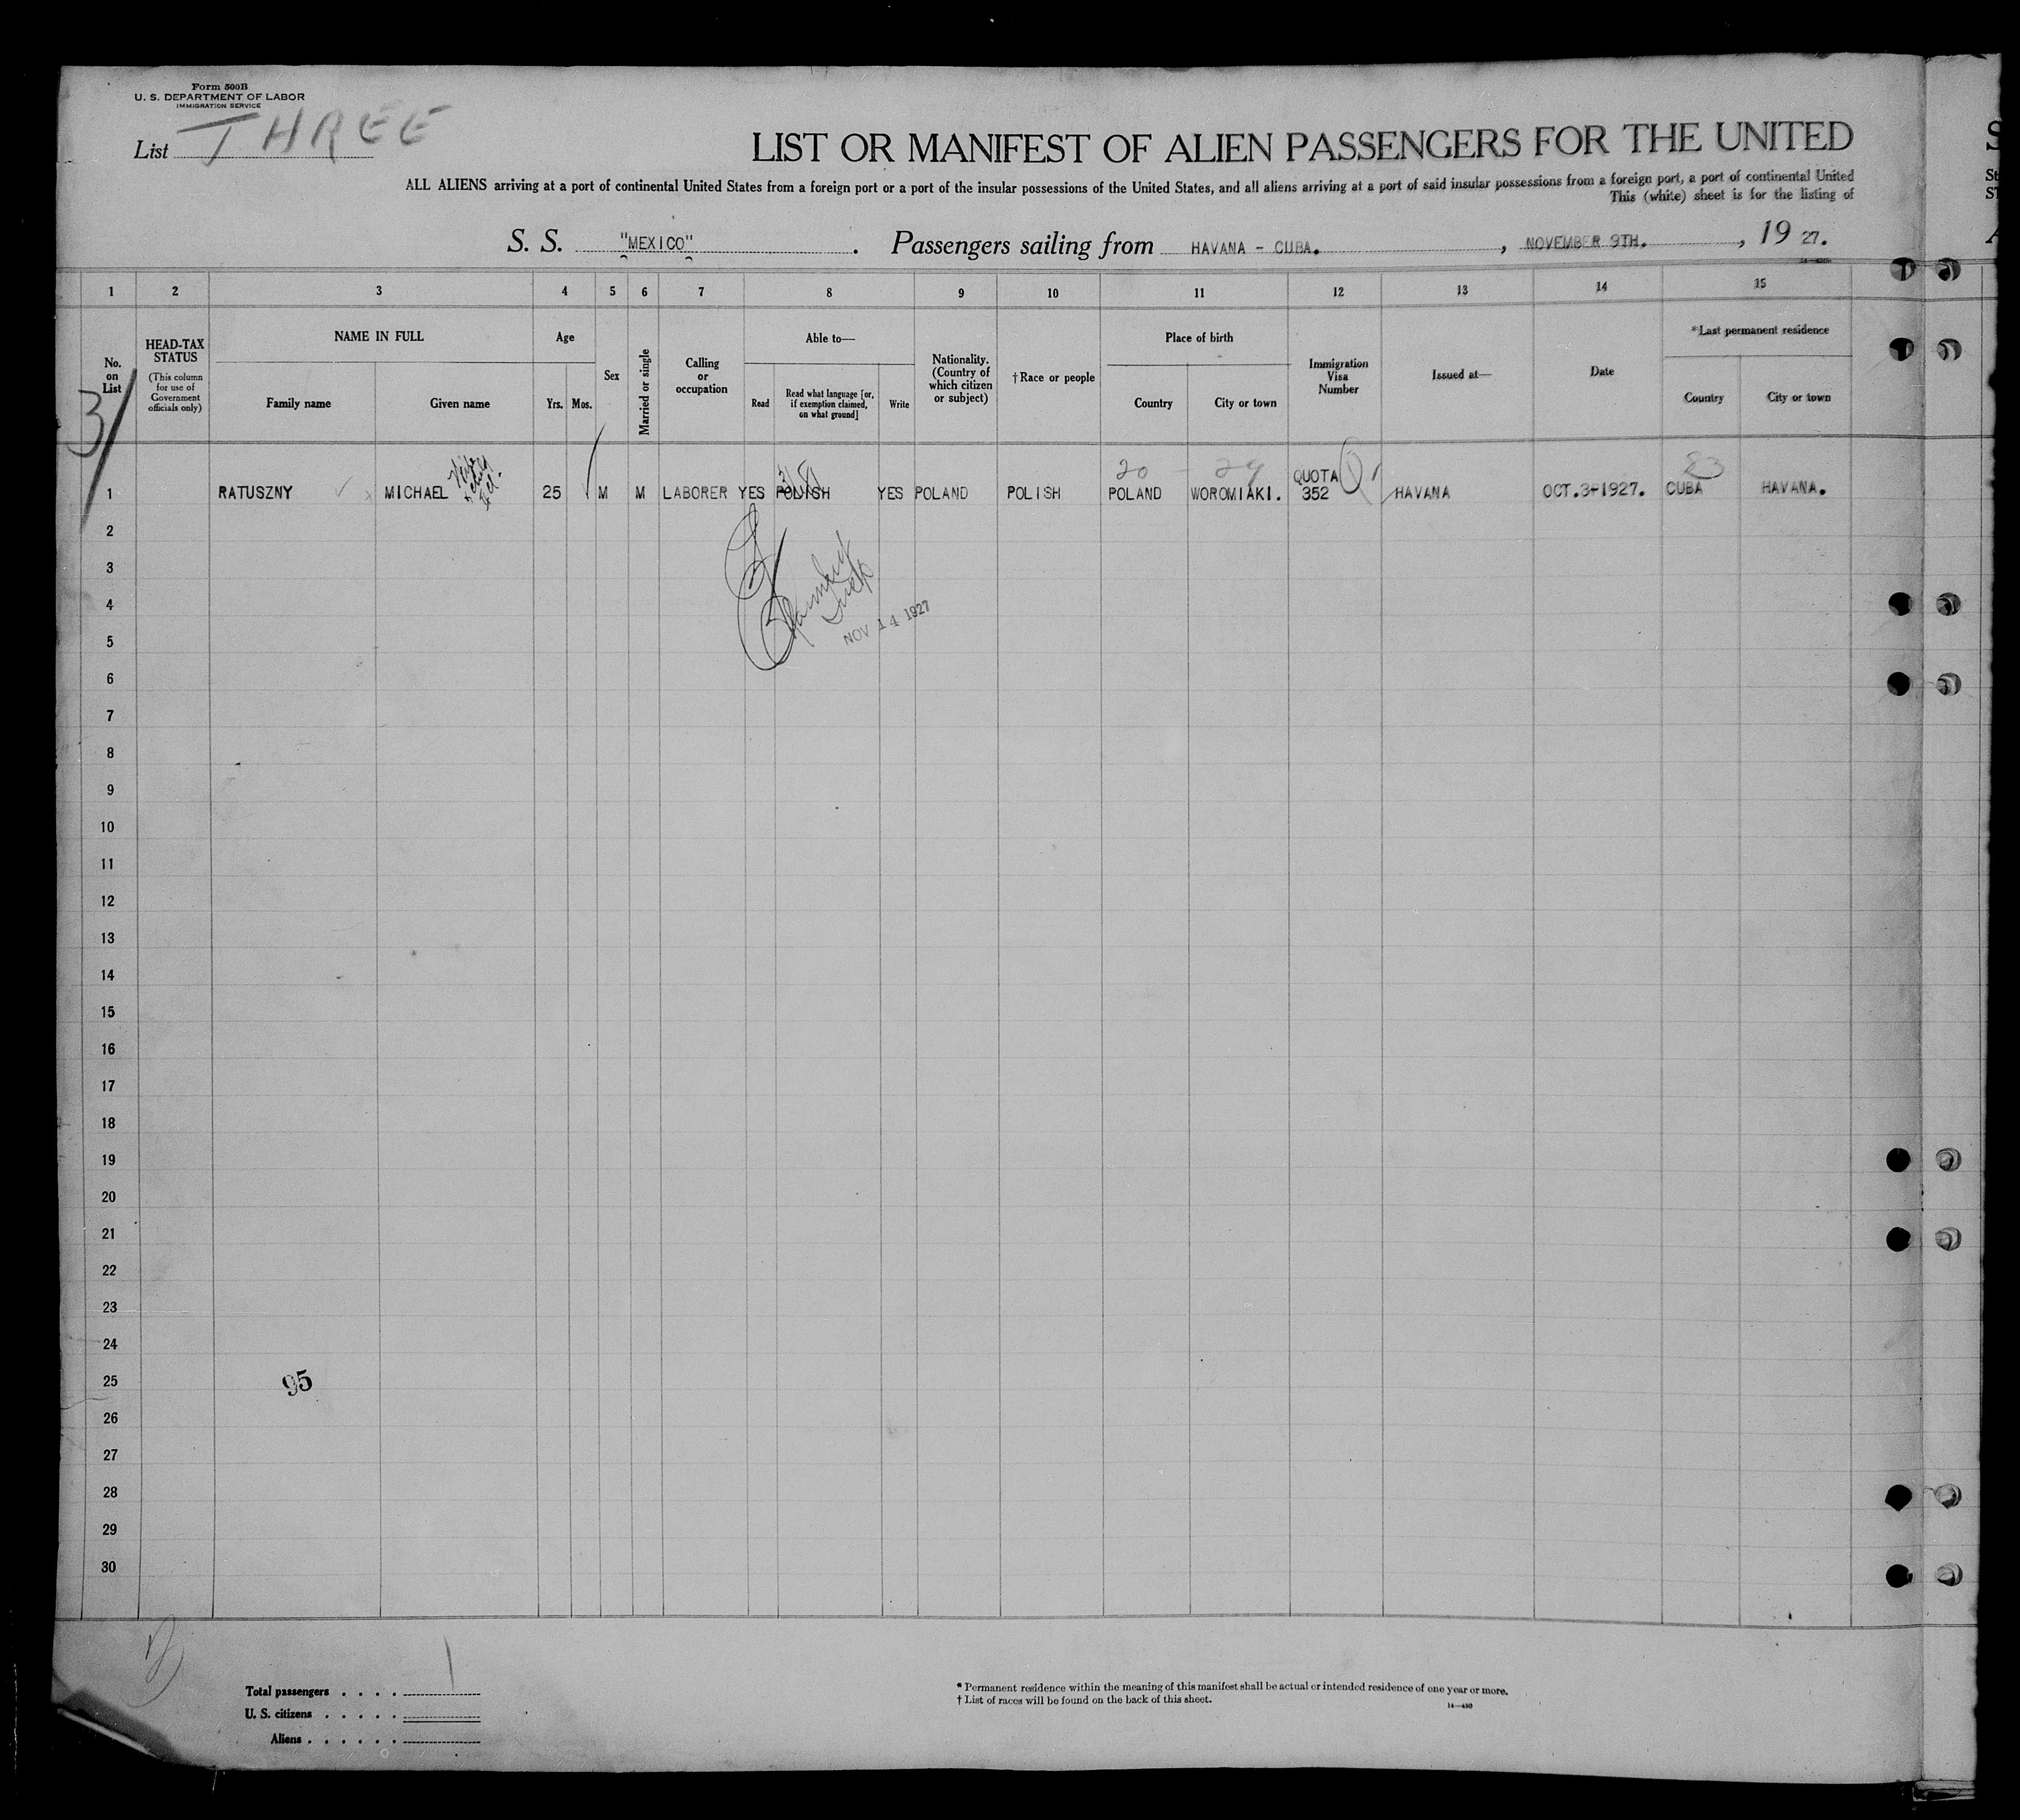 Form 500B
U. S. DEPARTMENT OF LABOR
IMMIGRATION SERVICE
List THREE
LIST OR MANIFEST OF ALIEN PASSENGERS FOR THE UNITED
ALL ALIENS arriving at a port of continental United States from a foreign port or a port of the insular possessions of the United States, and all aliens arriving at a port of said insular possessions from a foreign port, a port of continental United
This (white) sheet is for the listing of
S. S. "MEXICO". Passengers sailing from HAVANA - CUBA., NOVEMBER 9TH., 19 27.
1 2 3 4 5 6 7 8 9 10 11 12 13 14 15
No. on List
HEAD-TAX STATUS
(This column for use of Government officials only)
NAME IN FULL
Family name
Given name
Age
Yrs. Mos.
Sex
Married or single
Calling or occupation
Able to—
Read
Read what language [or, if exemption claimed, on what ground]
Write
Nationality. (Country of which citizen or subject)
†Race or people
Place of birth
Country
City or town
Immigration Visa Number
Issued at—
Date
*Last permanent residence
Country
City or town
3
20 - 24
23
1 RATUSZNY MICHAEL 25 M M LABORER YES POLISH YES POLAND POLISH POLAND WOROMIAKI. QUOTA 352 HAVANA OCT.3-1927. CUBA HAVANA.
2
3
4
NOV 14 1927
5
6
7
8
9
10
11
12
13
14
15
16
17
18
19
20
21
22
23
24
25
95
26
27
28
29
30
Total passengers . . . . 1
U. S. citizens . . . . .
Aliens . . . . . .
* Permanent residence within the meaning of this manifest shall be actual or intended residence of one year or more.
† List of races will be found on the back of this sheet.
14—430